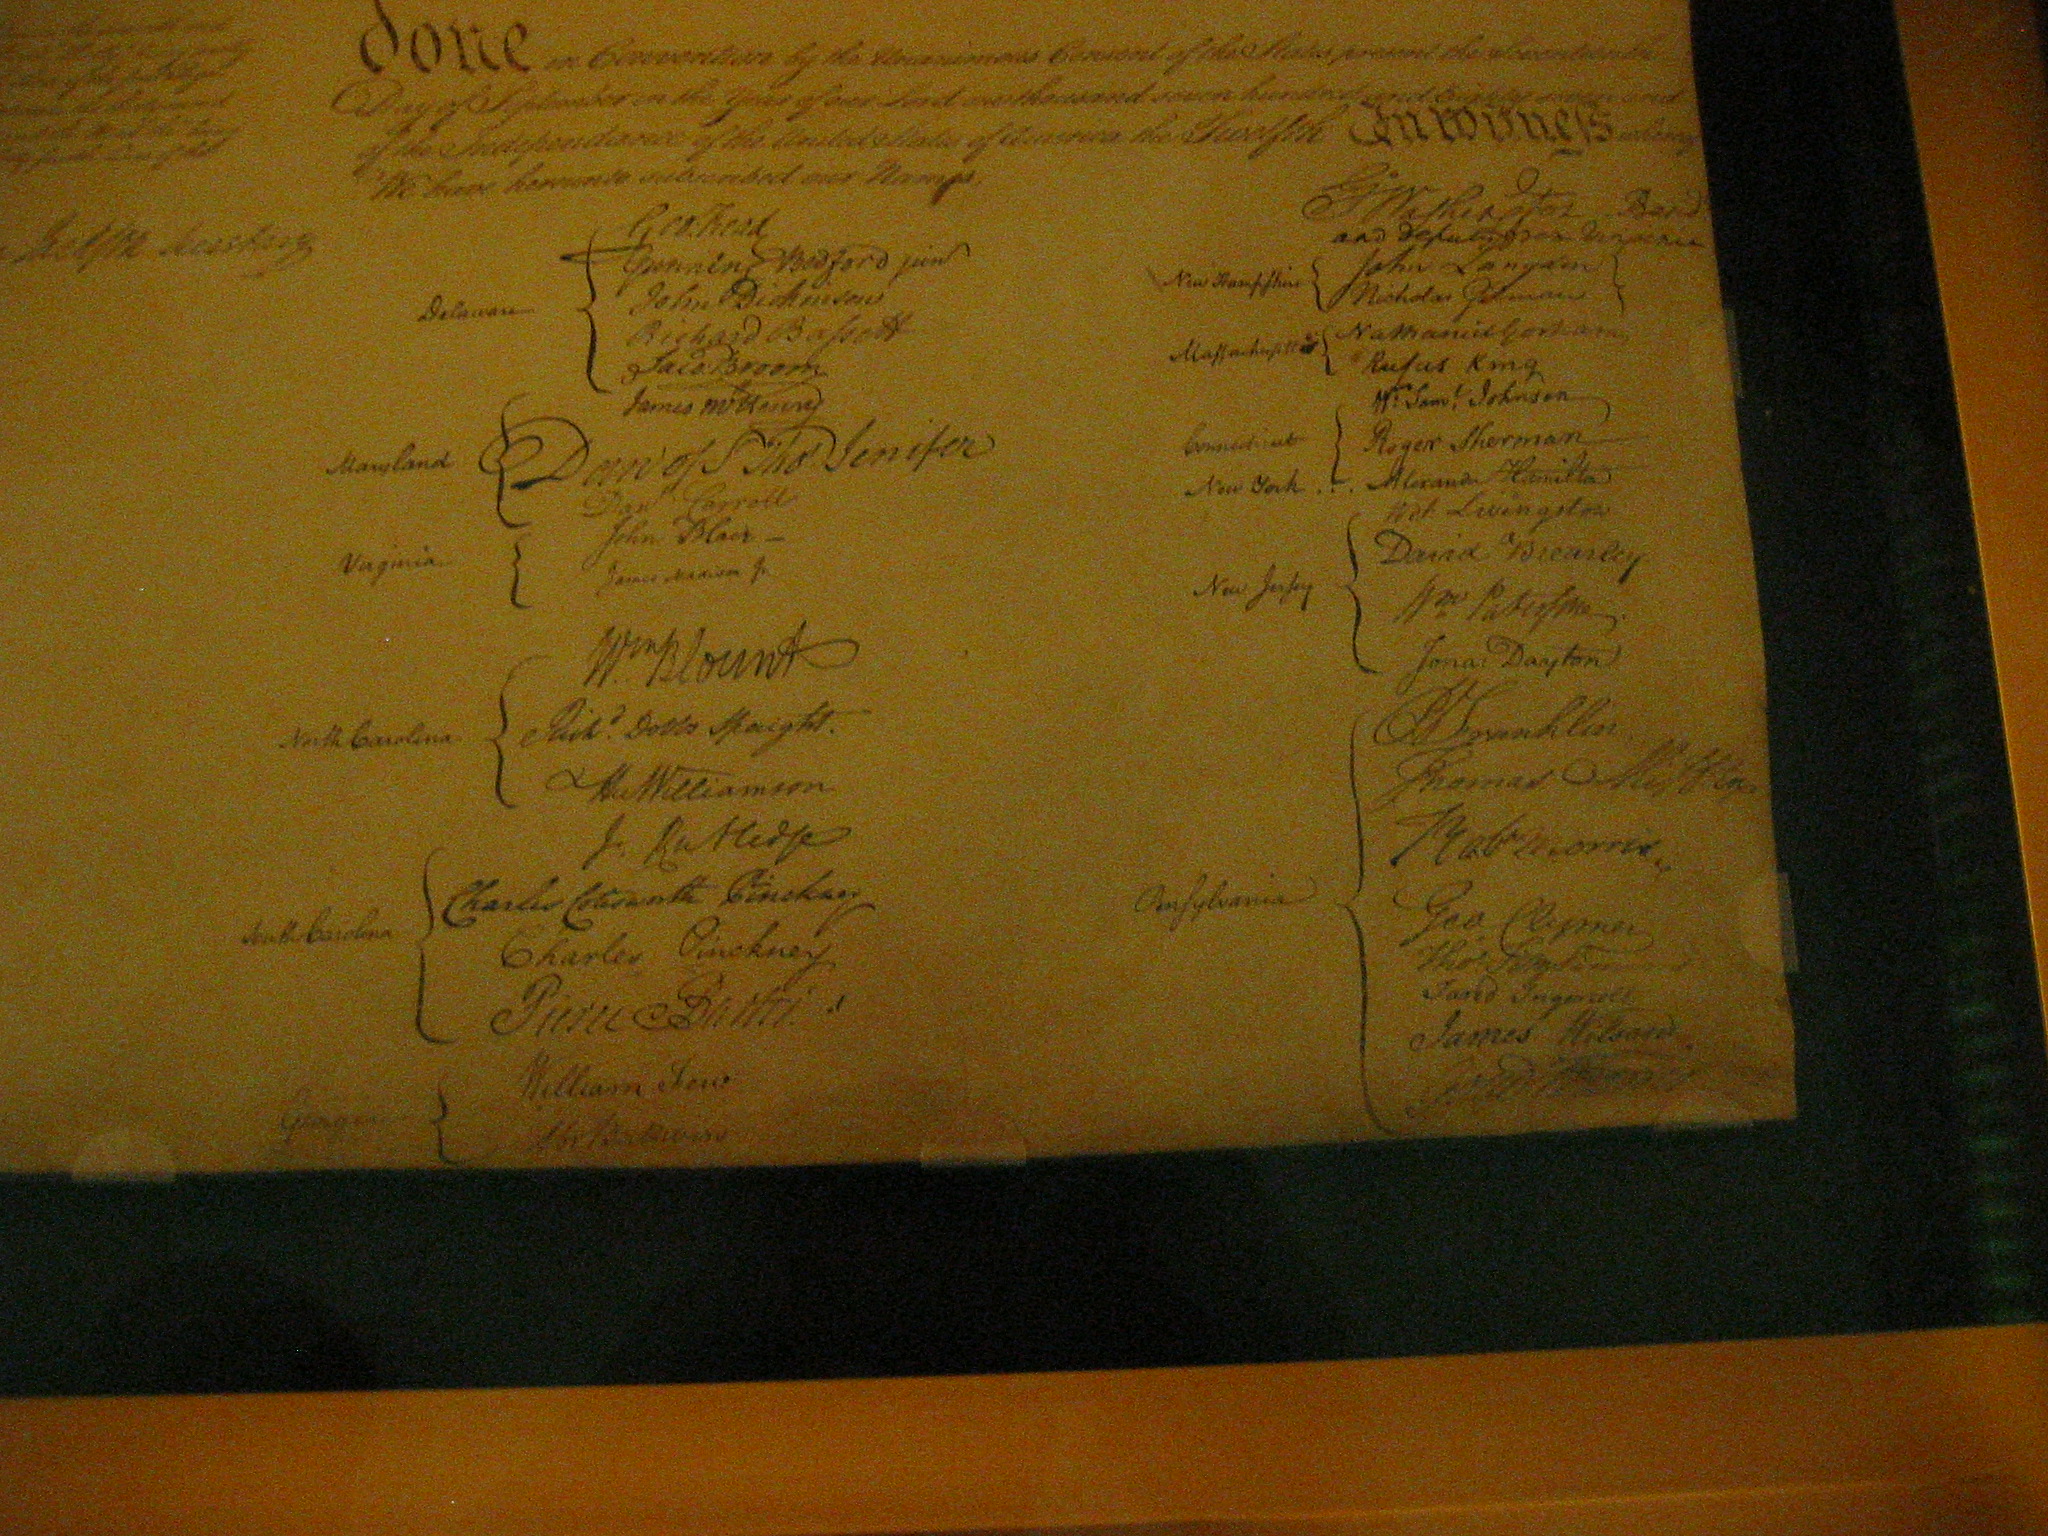 done in Convention by the Unanimous Consent of the States present the Seventeenth
Day of September in the Year of our Lord one thousand seven hundred and Eighty seven and
of the Independance of the United States of America the Twelfth In witness whereof
We have hereunto subscribed our Names,
Delaware
Geo: Read
Gunning Bedford jun
John Dickinson
Richard Bassett
Jaco: Broom
Maryland
James McHenry
Dan of St Thos Jenifer
Danl Carroll
Virginia
John Blair —
James Madison Jr.
North Carolina
Wm Blount
Richd. Dobbs Spaight.
Hu Williamson
South Carolina
J. Rutledge
Charles Cotesworth Pinckney
Charles Pinckney
Pierce Butler.
Georgia
William Few
Abr Baldwin
Go. Washington Presidt
and deputy from Virginia
New Hampshire
John Langdon
Nicholas Gilman
Massachusetts
Nathaniel Gorham
Rufus King
Connecticut
Wm. Saml. Johnson
Roger Sherman
New York . . . Alexander Hamilton
New Jersey
Wil: Livingston
David Brearley
Wm Paterson.
Jona: Dayton
Pensylvania
B Franklin
Thomas Mifflin
Robt Morris
Geo. Clymer
Thos. FitzSimons
Jared Ingersoll
James Wilson.
Gouv Morris